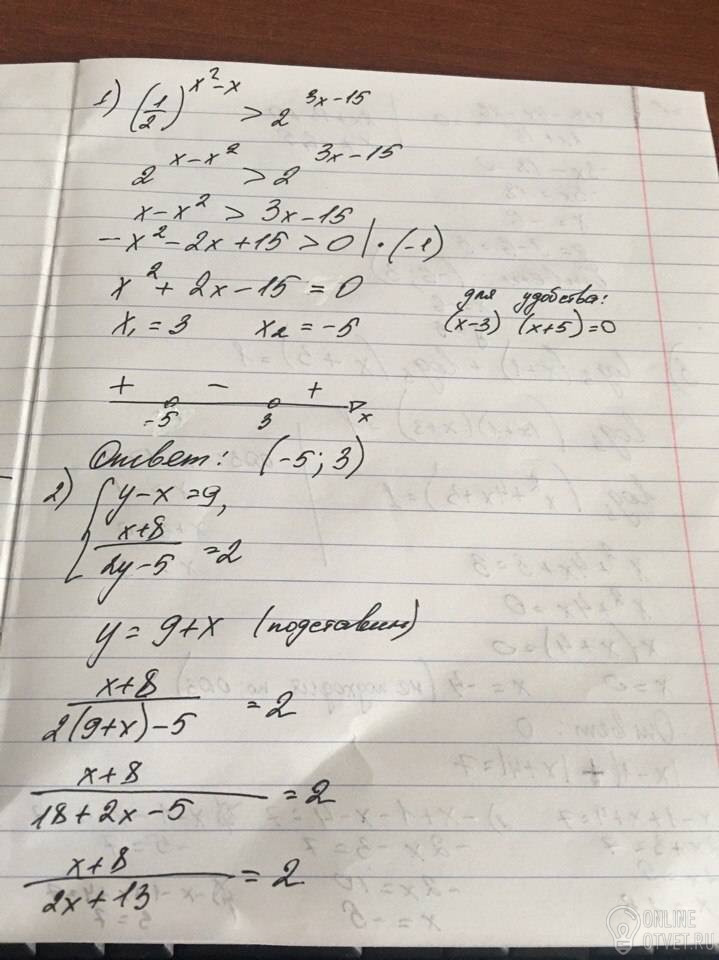 1) (1/2)^(x²-x) > 2^(3x-15)
2^(x-x²) > 2^(3x-15)
x-x² > 3x-15
-x²-2x+15 > 0 | · (-1)
x²+2x-15=0
x₁=3 x₂=-5
для удобства:
(x-3) (x+5)=0
+ - +
-5 3 x
Ответ: (-5; 3)
2) { y-x=9,
(x+8)/(2y-5) =2
y=9+x (подставим)
(x+8)/(2(9+x)-5) =2
(x+8)/(18+2x-5) =2
(x+8)/(2x+13) =2
ONLINE
OTVET.RU